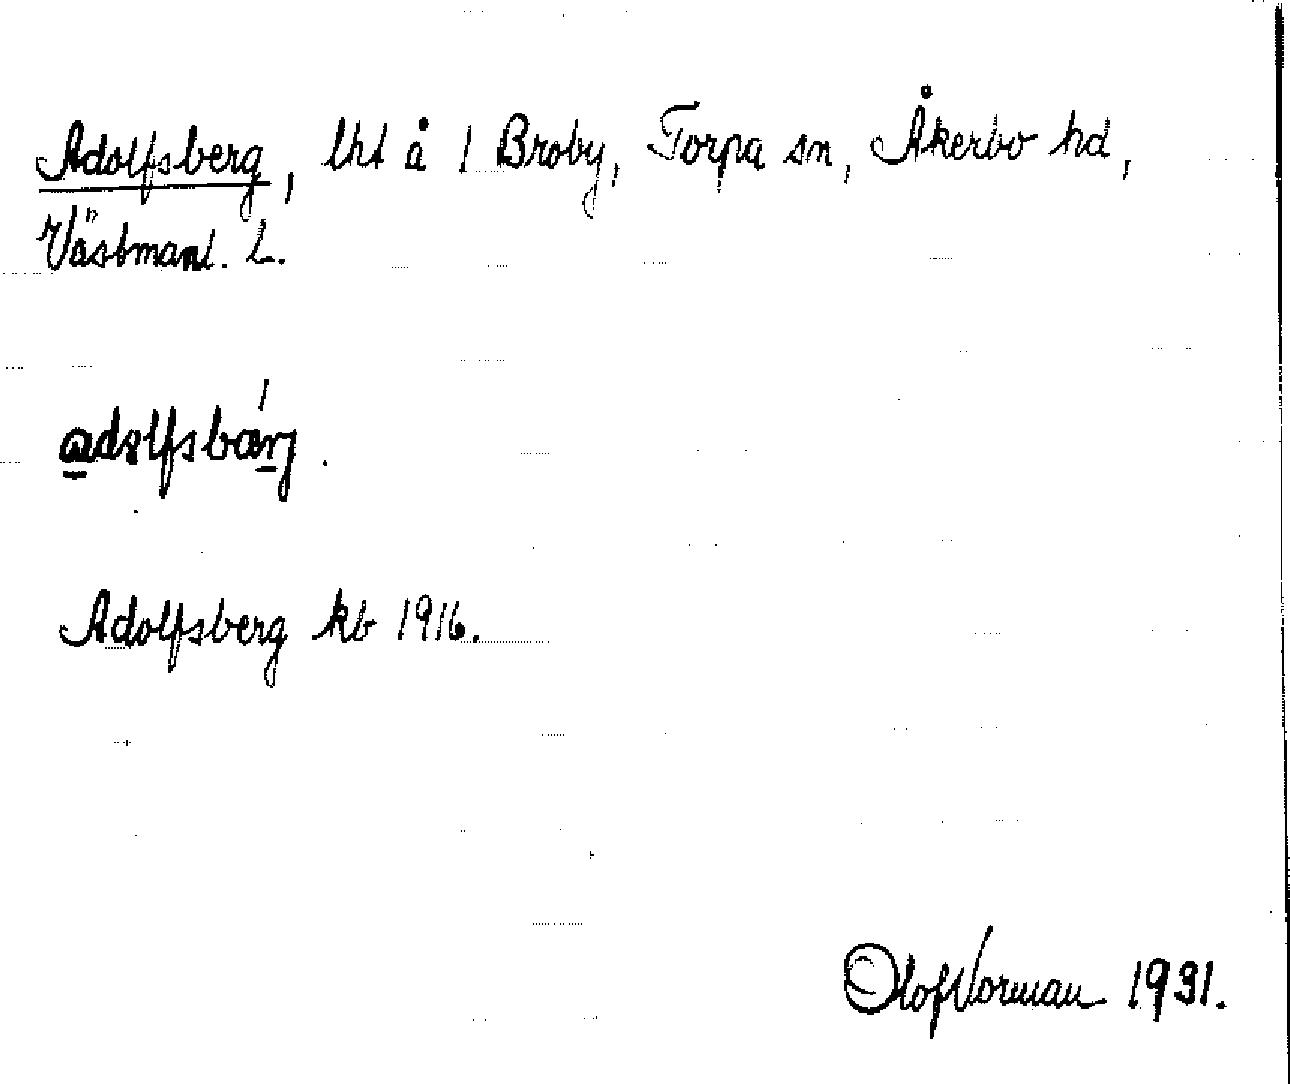 Adolfsberg, lht å 1 Broby, Torpa sn, Åkerbo hd,
Västmanl. L.
adolfsbærj.
Adolfsberg kb 1916.
Olof Vorman 1931.